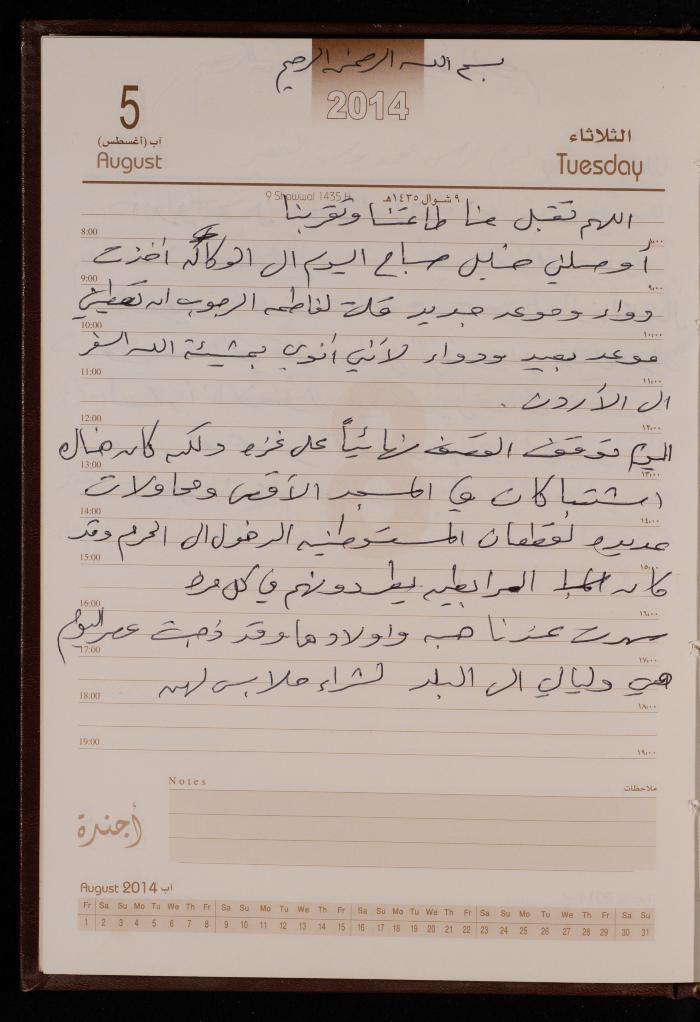 بسم الله الرحمن الرحيم
2014
5
آب (أغسطس)
August
الثلاثاء
Tuesday
9 Shawwal 1435 H
٩ شوال ١٤٣٥هـ
اللهم تقبل منا طاعتنا وتقربنا
8:00
أوصلني خليل صباح اليوم الى الوكاله أخذت
9:00 ٩،٠٠
دواء وموعد جديد قلت لفاطمه الرجوب ان تعطيني
10:00 ١٠،٠٠
موعد بعيد ودواء لأنني أنوي بمشيئة الله السفر
11:00 ١١،٠٠
الى الأردن .
12:00 ١٢،٠٠
اليوم توقف القصف نهائياً على غزه ولكن كان هناك
13:00 ١٣،٠٠
اشتباكات في المسجد الأقصى ومحاولات
14:00 ١٤،٠٠
عديده لقطعان المستوطنين الدخول الى الحرم وقد
15:00 ١٥،٠٠
كان المرابطين يطردونهم في كل مره
16:00 ١٦،٠٠
سهرت عندنا هبه واولادها وقد ذهبت عصر اليوم
17:00 ١٧،٠٠
هي وليالي الى البلد لشراء ملابس لهن
18:00 ١٨،٠٠
19:00 ١٩،٠٠
Notes ملاحظات
أجندة
August 2014 آب
Fr Sa Su Mo Tu We Th Fr Sa Su Mo Tu We Th Fr Sa Su Mo Tu We Th Fr Sa Su Mo Tu We Th Fr Sa Su
1 2 3 4 5 6 7 8 9 10 11 12 13 14 15 16 17 18 19 20 21 22 23 24 25 26 27 28 29 30 31